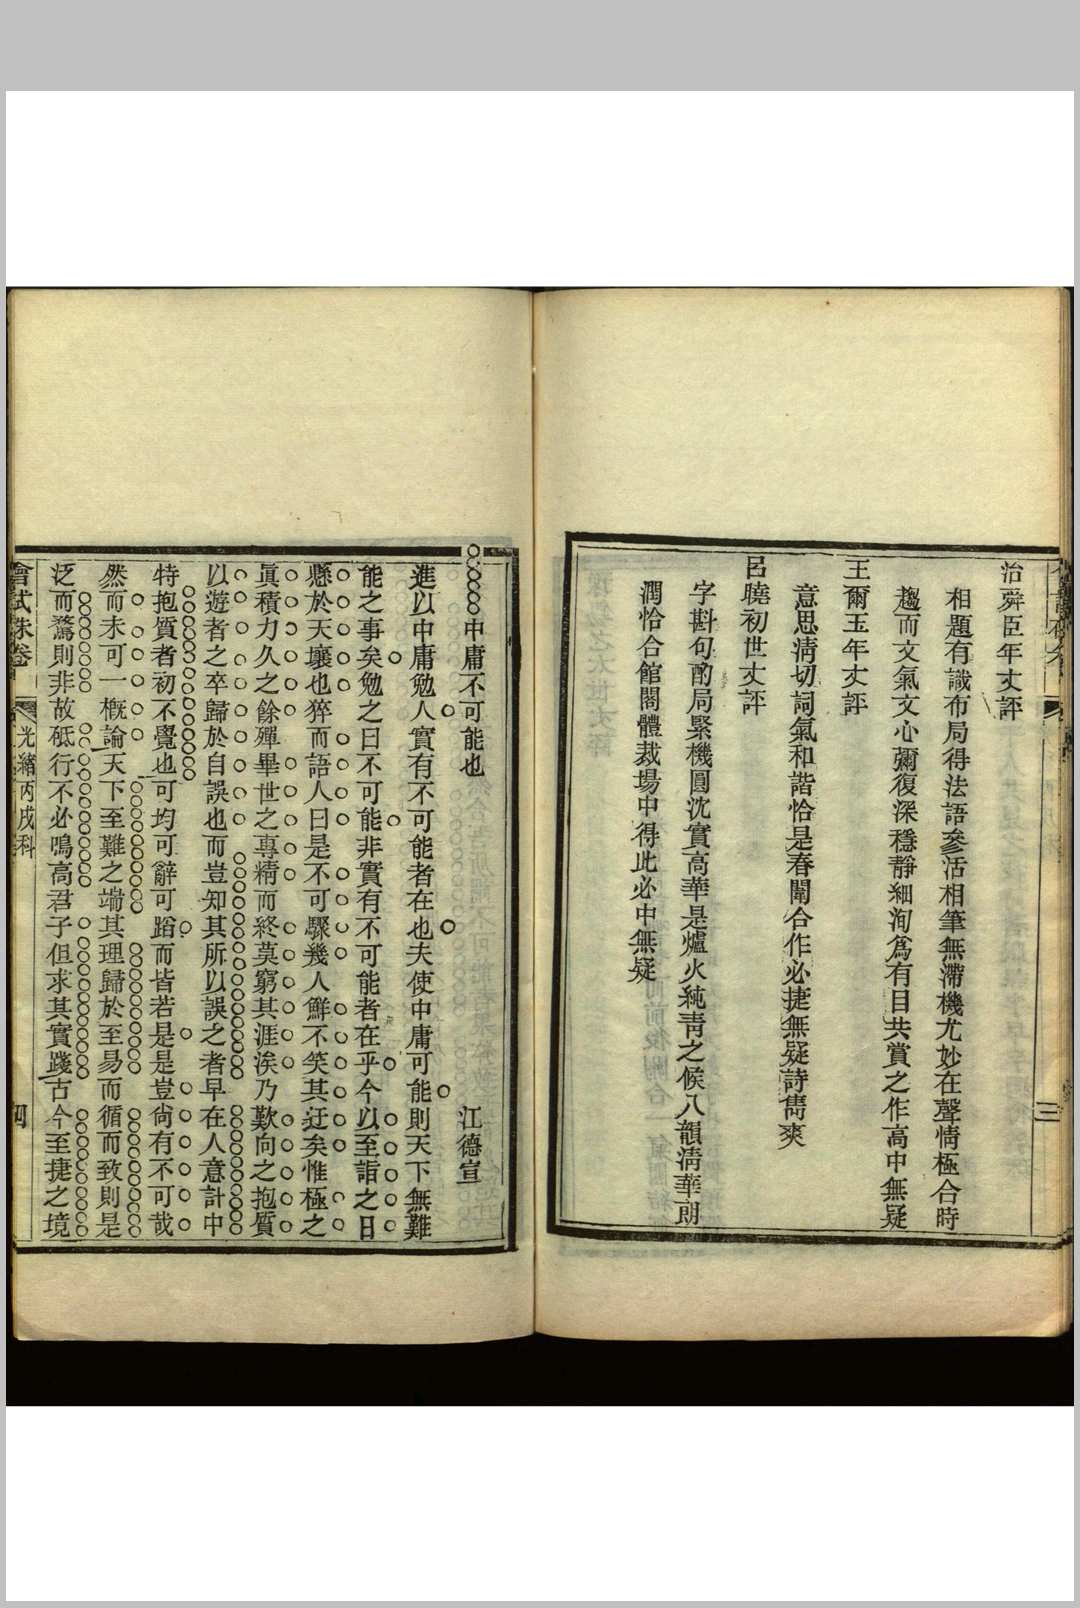 治舜臣年丈評
相題有識布局得法語參活相筆無滯機尤妙在聲情極合時
趨而文氣文心彌復深穩靜細洵爲有目共賞之作高中無疑
王爾玉年丈評
意思淸切詞氣和諧恰是春闈合作必捷無疑詩雋爽
呂曉初世丈評
字斟句酌局緊機圓沈實高華是爐火純靑之候八韻淸華朗
潤恰合館閣體裁場中得此必中無疑
三
中庸不可能也
江德宣
進以中庸勉人實有不可能者在也夫使中庸可能則天下無難
能之事矣勉之曰不可能非實有不可能者在乎今以至詣之日
懸於天壤也猝而語人曰是不可驟幾人鮮不笑其迂矣惟極之
眞積力久之餘殫畢世之專精而終莫窮其涯涘乃歎向之抱質
以遊者之卒歸於自誤也而豈知其所以誤之者早在人意計中
特抱質者初不覺也可均可辭可蹈而皆若是是豈尙有不可哉
然而未可一概論天下至難之端其理歸於至易而循而致則是
泛而騖則非故砥行不必鳴高君子但求其實踐古今至捷之境
會試硃卷
光緒丙戌科
四